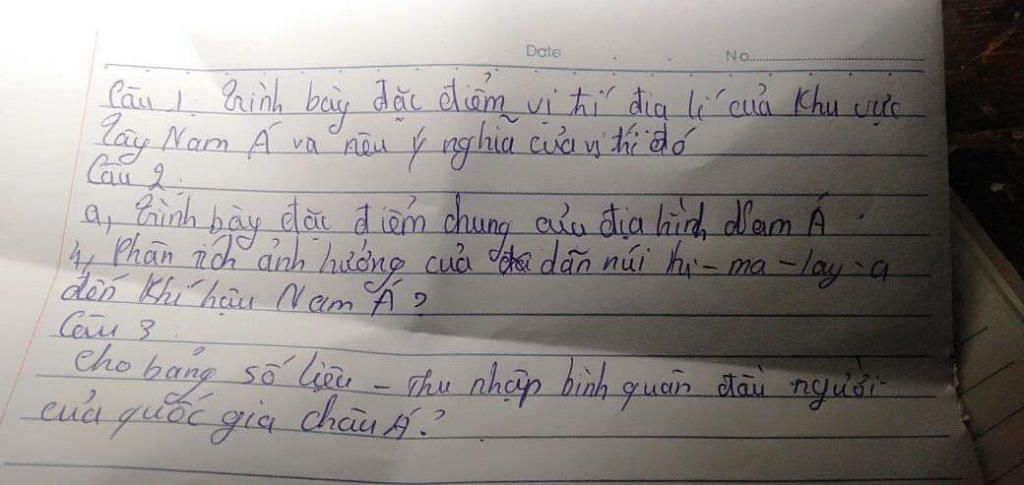 Date No.
Câu 1. Trình bày đặc điểm vị trí địa lí của khu vực
Tây Nam Á và nêu ý nghĩa của vị trí đó
Câu 2.
a, Trình bày đặc điểm chung của địa hình Nam Á.
b, Phân tích ảnh hưởng của dãn núi hi-ma-lay-a
đến khí hậu Nam Á?
Câu 3.
Cho bảng số liệu - Thu nhập bình quân đầu người
của quốc gia châu Á?